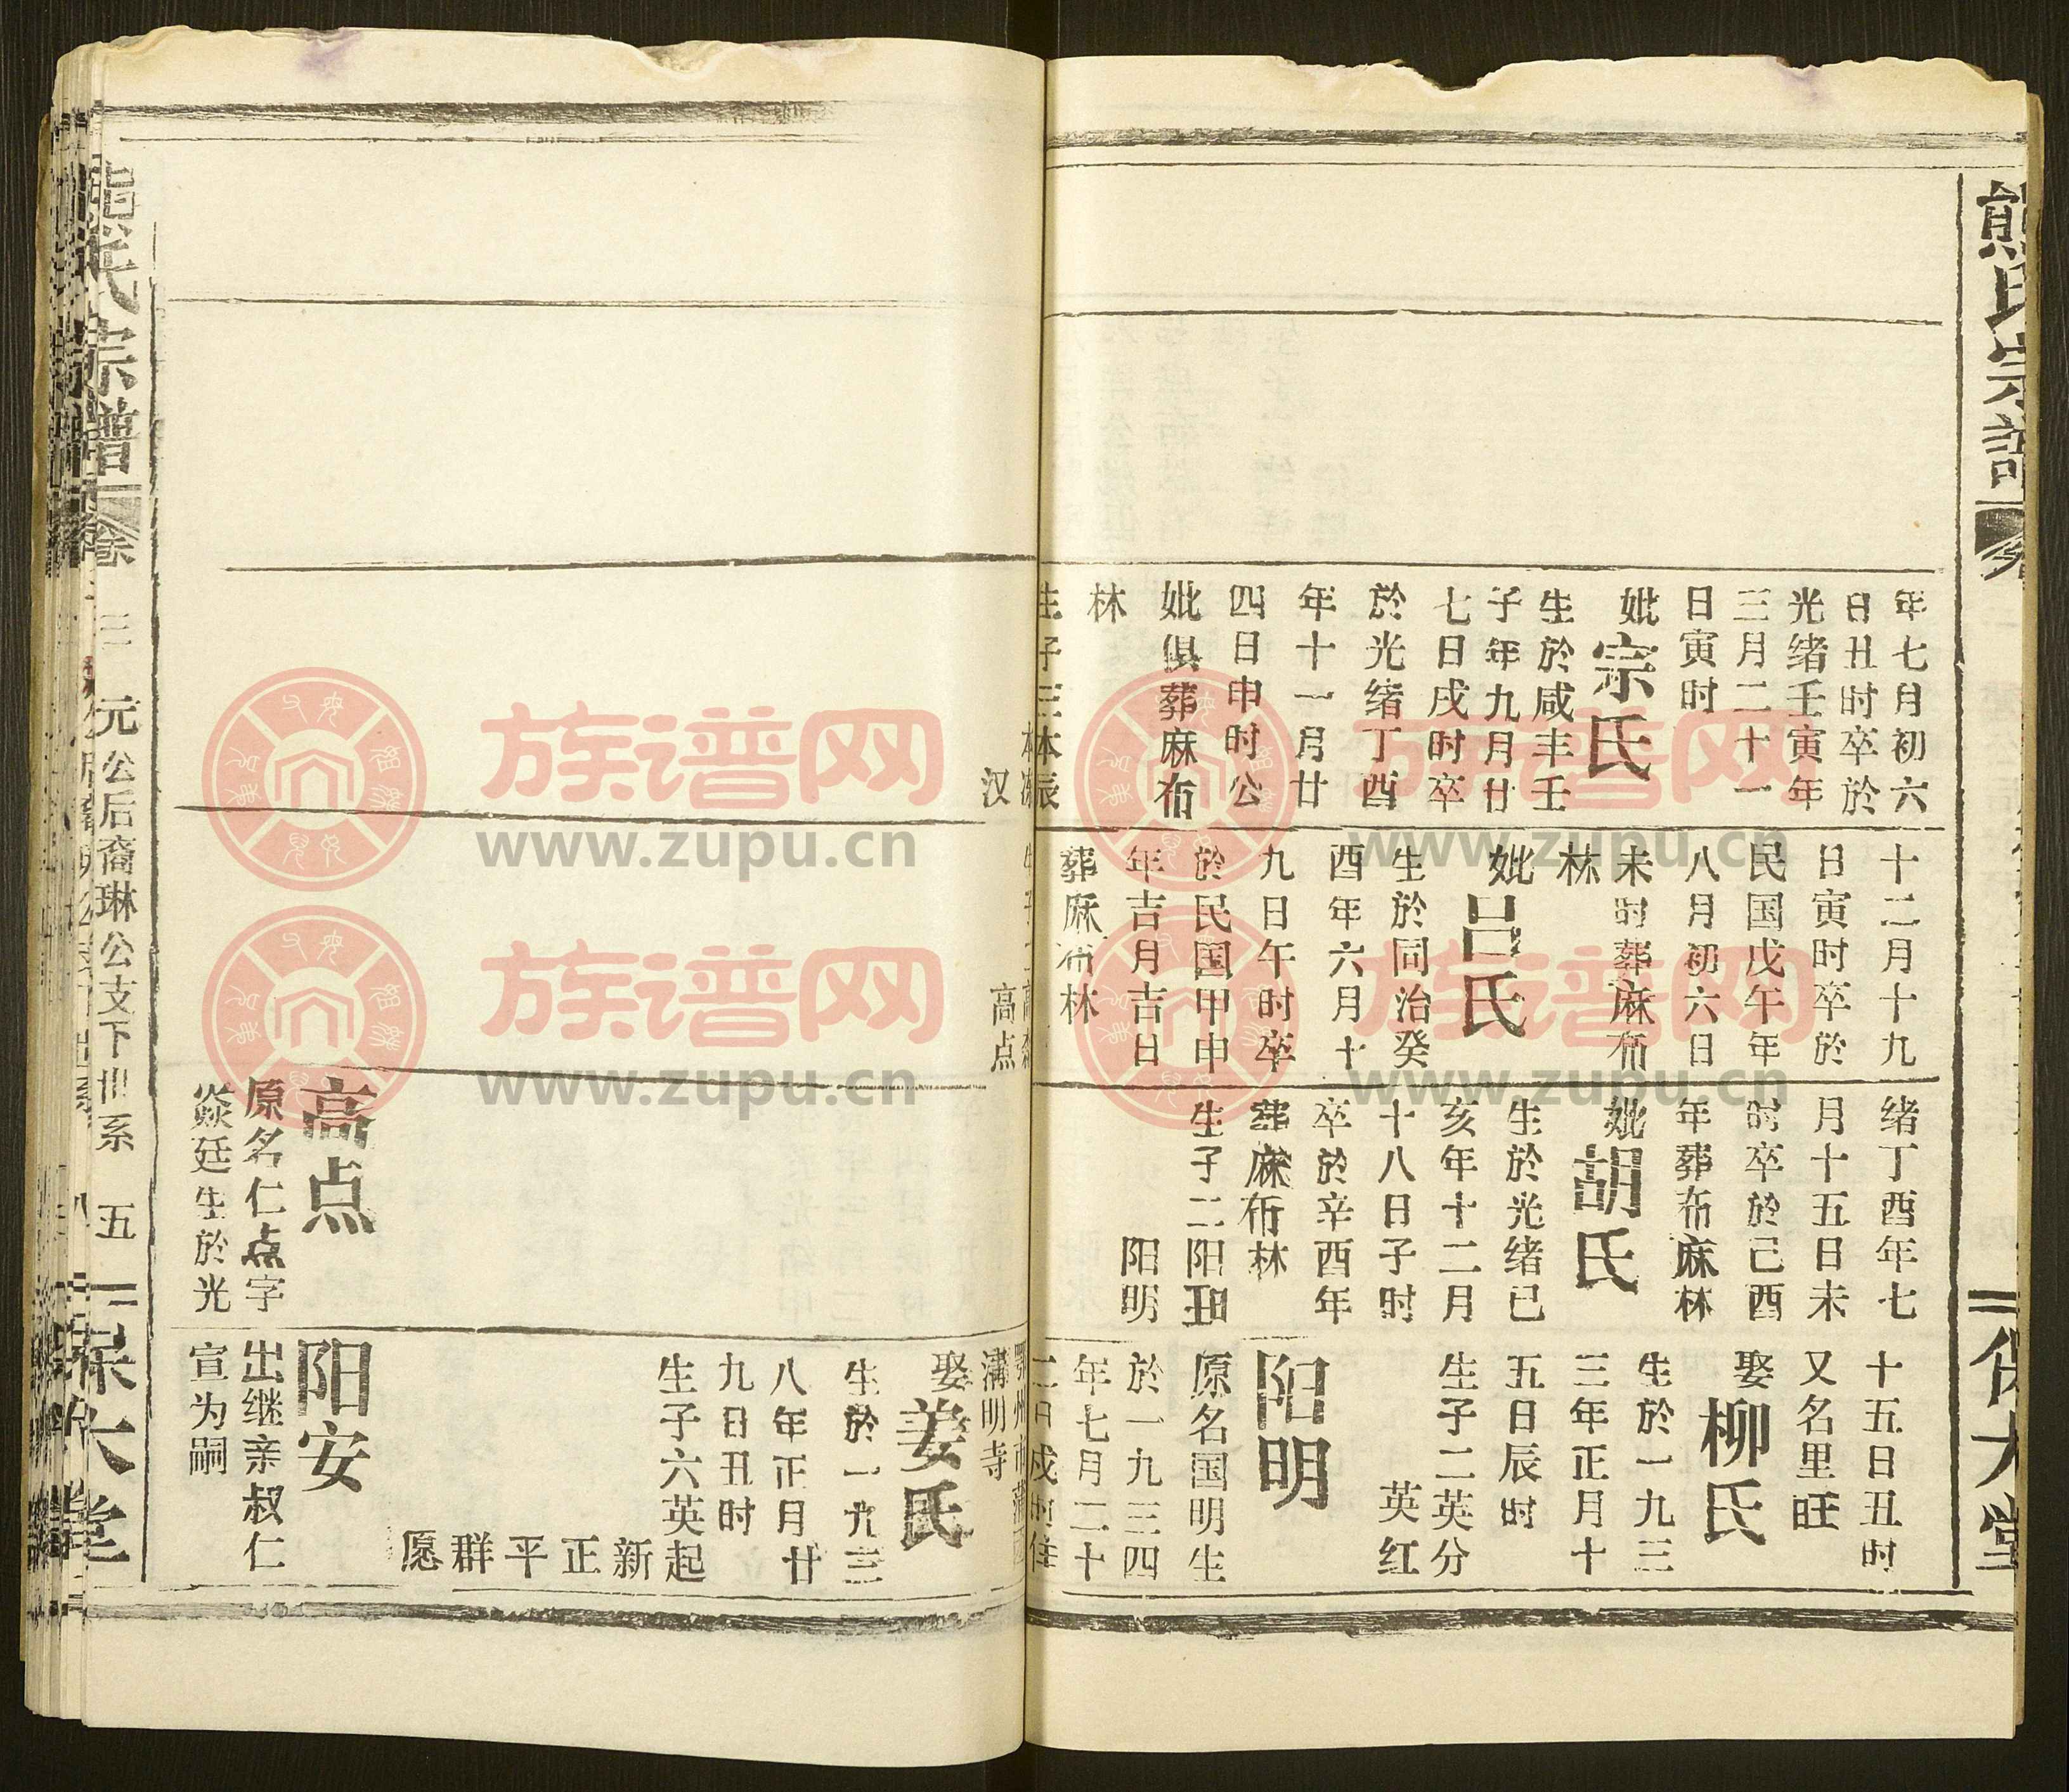 熊氏宗譜
年七月初六
日丑时卒於
光绪壬寅年
三月二十一
日寅时
妣宗氏
生於咸丰壬
子年九月廿
七日戌时卒
於光绪丁酉
年十一月廿
四日申时公
妣俱葬麻布
林
生子三本辰
汉
十二月十九
日寅时卒於
民国戊午年
八月初六日
未时葬麻布
林
妣吕氏
生於同治癸
酉年六月十
九日午时卒
於民国甲申
年吉月吉日
葬麻布林
高点
绪丁酉年七
月十五日未
时卒於己酉
年葬布麻林
妣胡氏
生於光绪己
亥年十二月
十八日子时
卒於辛酉年
葬麻布林
生子二阳和
阳明
高点
原名仁点字
焱廷生於光
十五日丑时
又名里旺
娶柳氏
生於一九三
三年正月十
五日辰时
生子二英分
英红
阳明
原名国明生
於一九三四
年七月二十
二日戌时住
溝明寺
娶姜氏
生於一九三
八年正月廿
九日丑时
生子六英起
新
正
平
群
愿
阳安
出继亲叔仁
宣为嗣
熊氏宗譜
卷
三
元公后裔琳公支下世系
五
保大堂
族谱网
www.zupu.cn
族谱网
www.zupu.cn
族谱网
www.zupu.cn
族谱网
www.zupu.cn